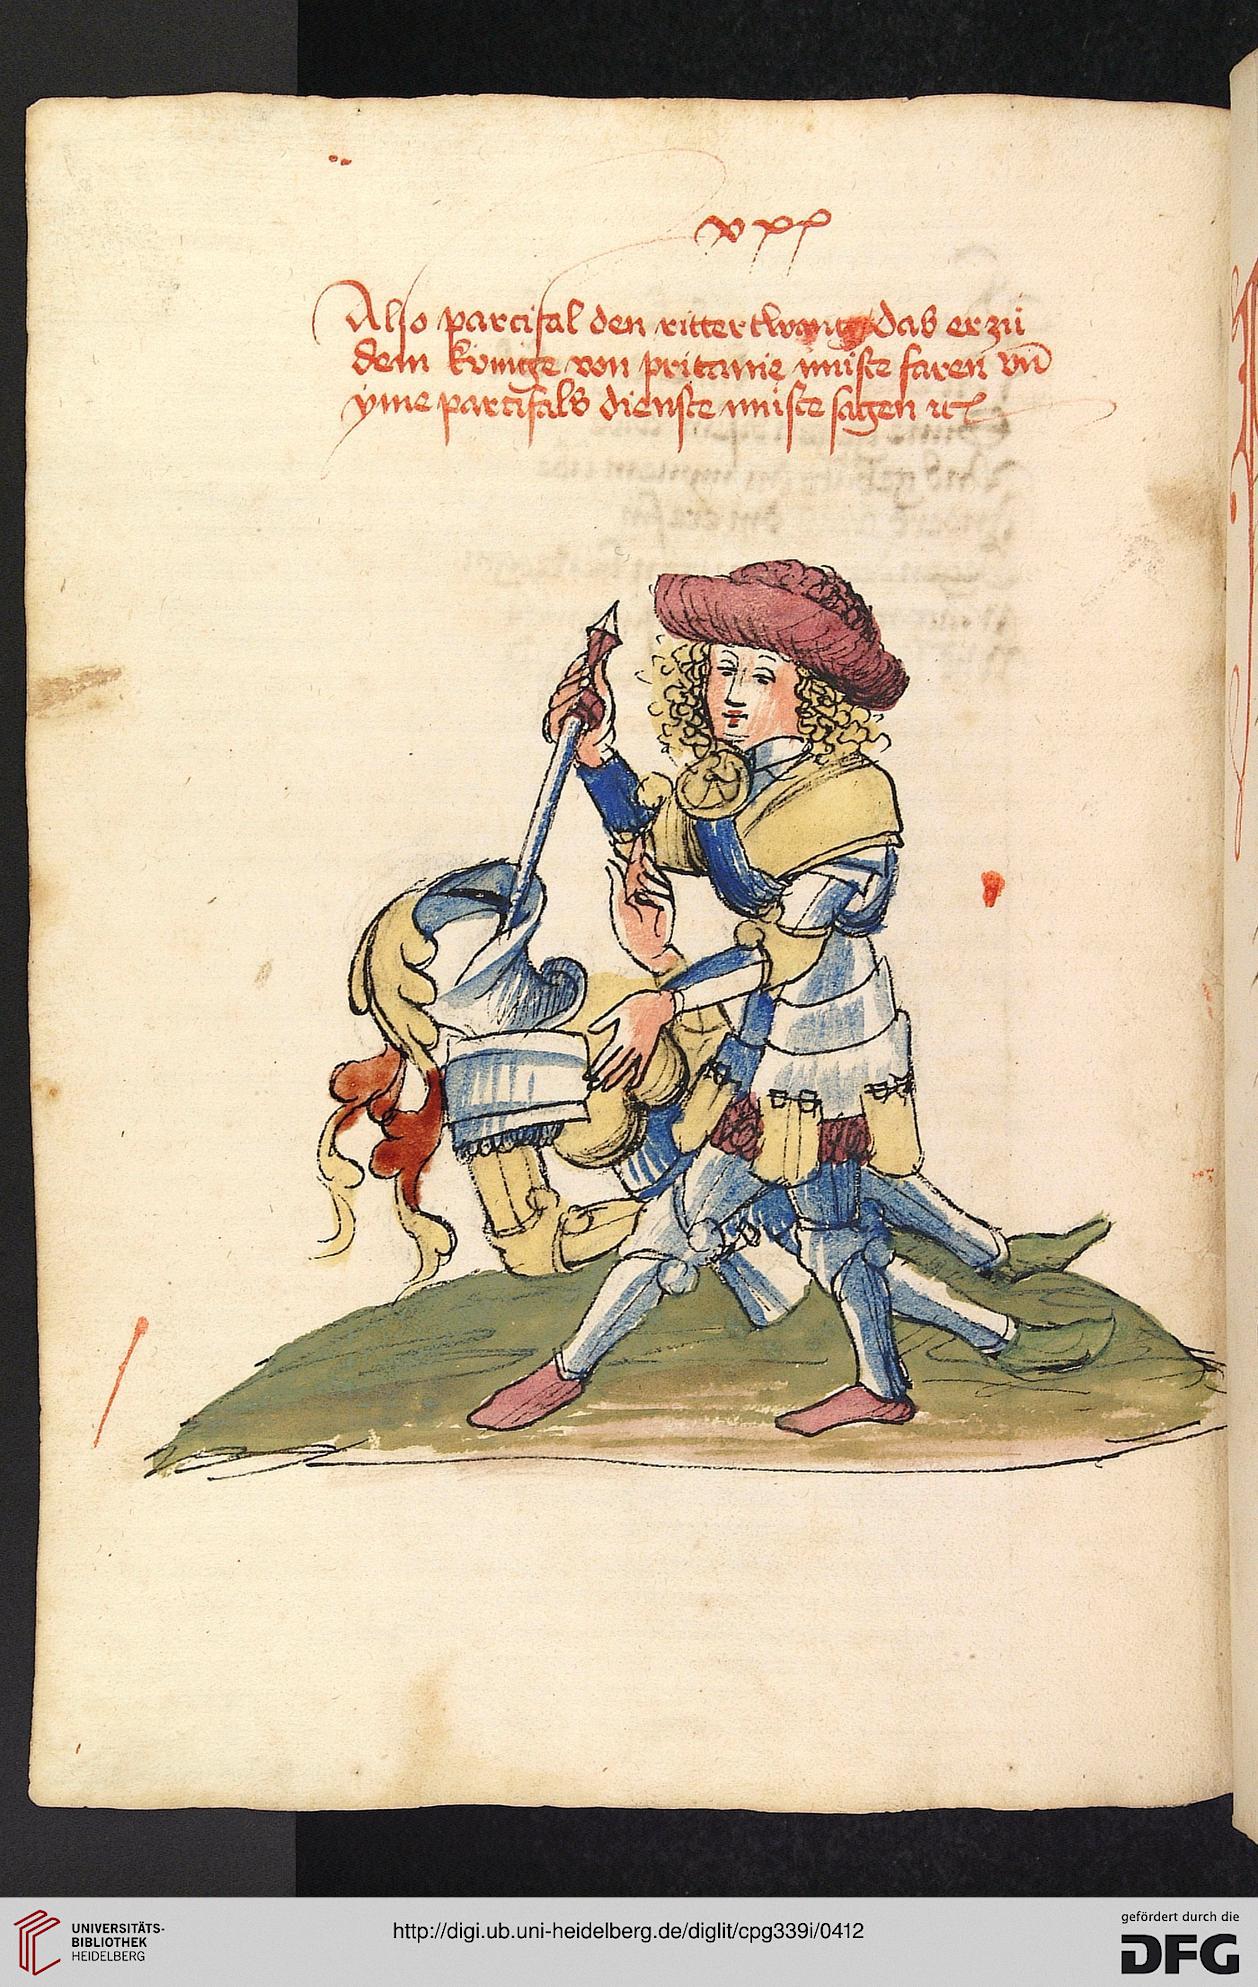 xxx
Also parcifal den ritter twang das er zů
dem kỏnige von pritanie mu̇ste faren vn̄
yme parcifals dienste mu̇ste sagen ꝛc
UNIVERSITÄTS-
BIBLIOTHEK
HEIDELBERG
http://digi.ub.uni-heidelberg.de/diglit/cpg339i/0412
gefördert durch die
DFG